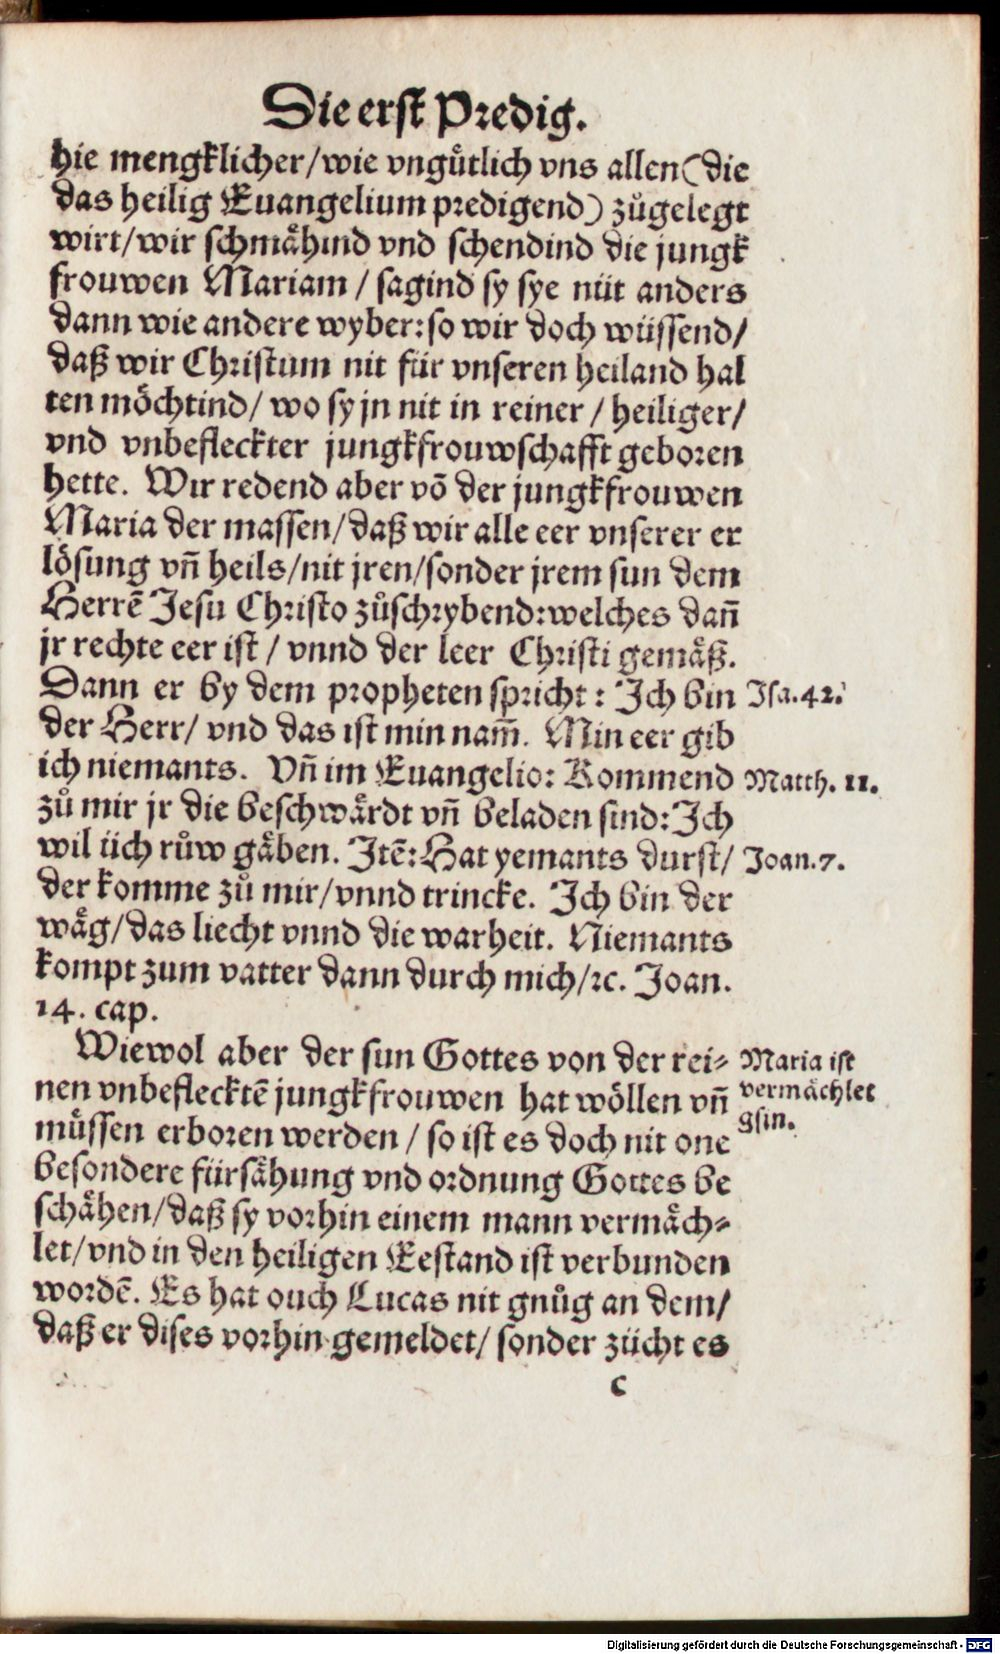 Die erst Predig.
hie mengklicher/wie vnguͤtlich vns allen(die
das heilig Euangelium predigend) zuͦgelegt
wirt/wir schmaͤhind vnd schendind die jungk
frouwen Mariam / sagind sy sye nüt anders
dann wie andere wyber: so wir doch wüssend/
daß wir Christum nit für vnseren heiland hal
ten moͤchtind/ wo sy jn nit in reiner / heiliger/
vnd vnbefleckter jungkfrouwschafft geboren
hette. Wir redend aber võ der jungkfrouwen
Maria der massen/daß wir alle eer vnserer er
loͤsung vñ heils/nit jren/sonder jrem sun dem
Herrẽ Jesu Christo zuͦschrybend: welches dañ
jr rechte eer ist / vnnd der leer Christi gemaͤß.
Dann er by dem propheten spricht: Ich bin Isa.42.
der Herr/ vnd das ist min nam̃. Min eer gib
ich niemants. Vñ im Euangelio: Kommend Matth. 11.
zuͦ mir jr die beschwaͤrdt vñ beladen sind: Ich
wil üch ruͦw gaͤben. Itẽ: Hat yemants durst/ Joan.7.
der komme zuͦ mir/vnnd trincke. Ich bin der
waͤg/das liecht vnnd die warheit. Niemants
kompt zum vatter dann durch mich/ꝛc. Joan.
14. cap.
Wiewol aber der sun Gottes von der rei⸗ Maria ist
nen vnbeflecktẽ jungkfrouwen hat woͤllen vñ vermaͤchlet
muͤssen erboren werden / so ist es doch nit one gsin.
besondere fürsaͤhung vnd ordnung Gottes be
schaͤhen/daß sy vorhin einem mann vermaͤch⸗
let/vnd in den heiligen Eestand ist verbunden
wordẽ. Es hat ouch Lucas nit gnuͦg an dem/
daß er dises vorhin gemeldet/ sonder zücht es
c
Digitalisierung gefördert durch die Deutsche Forschungsgemeinschaft - DFG